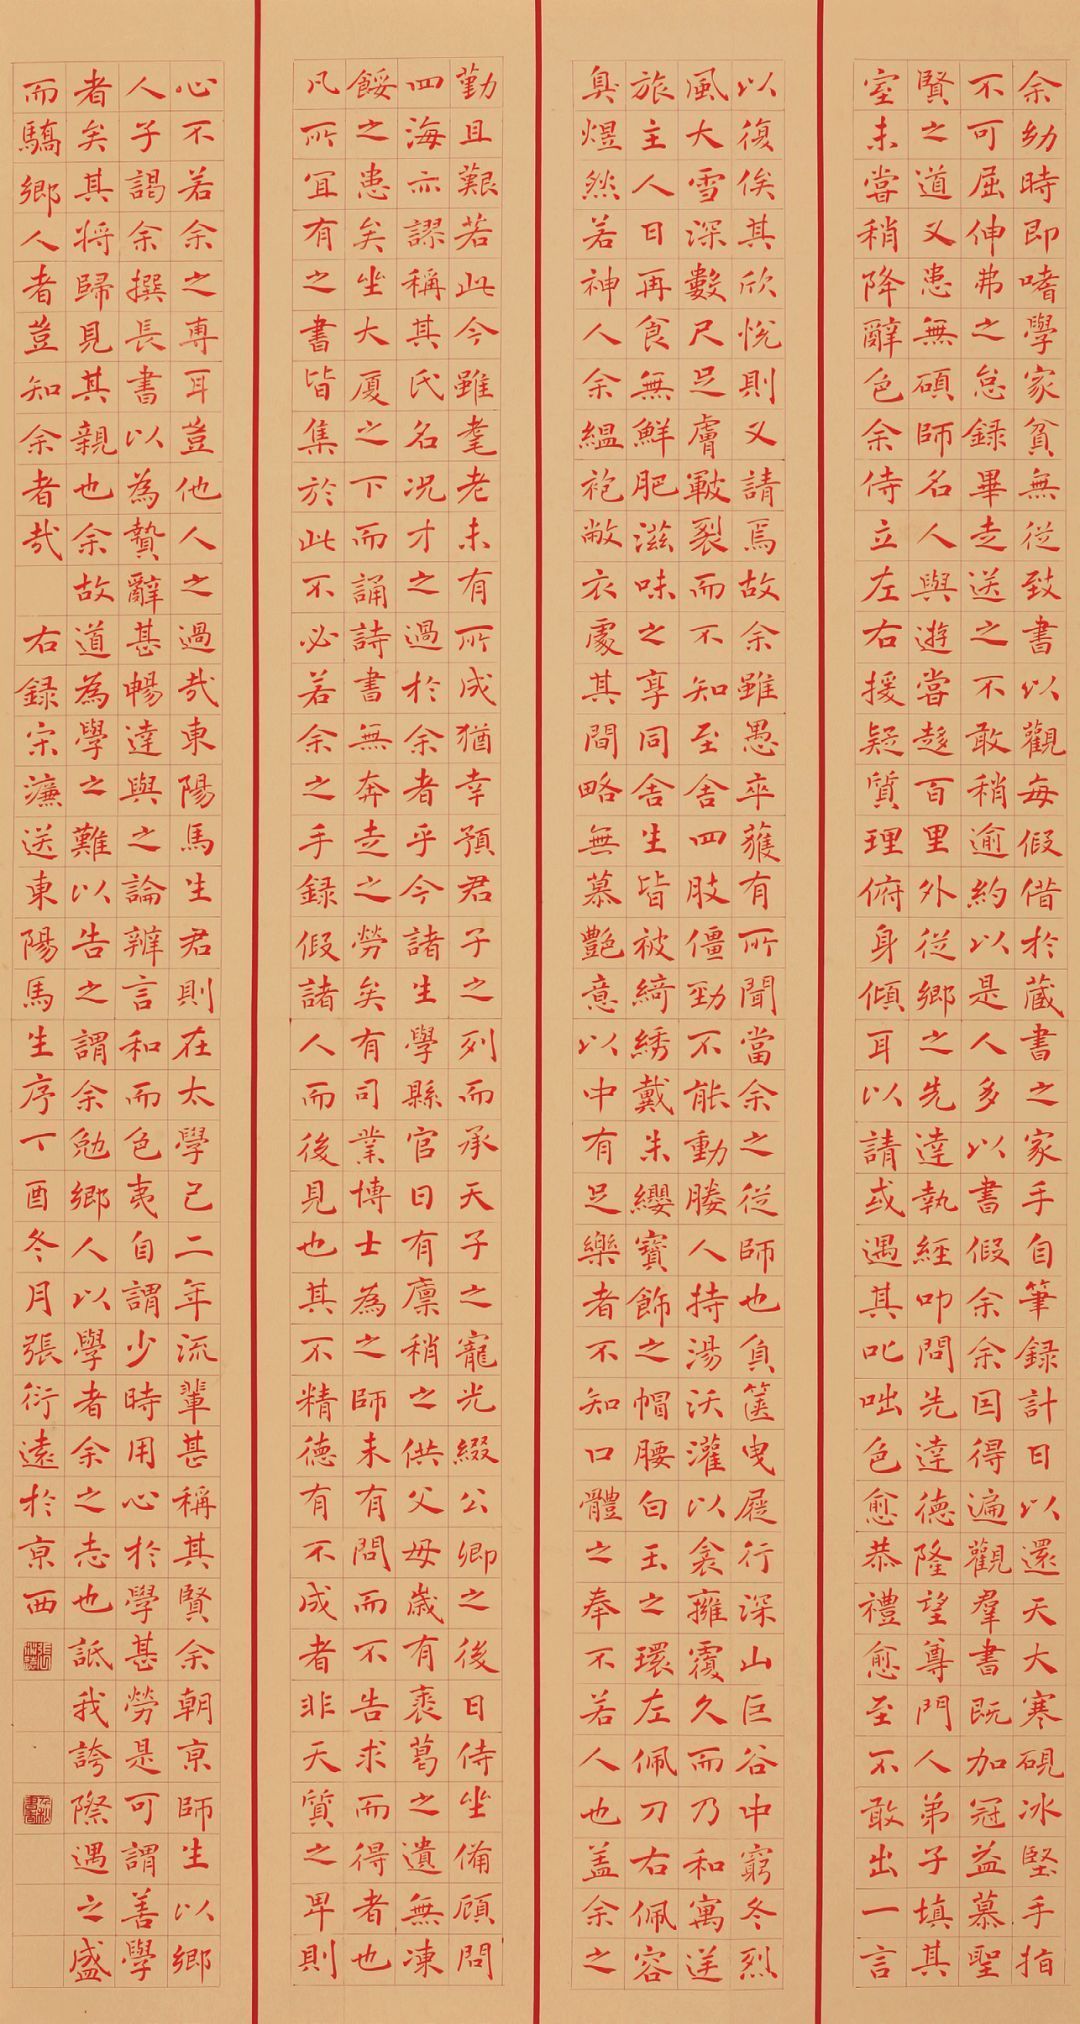 余幼時即嗜學家貧無從致書以觀每假借於藏書之家手自筆録計日以還天大寒硯冰堅手指
不可屈伸弗之怠録畢走送之不敢稍逾約以是人多以書假余余因得遍觀羣書既加冠益慕聖
賢之道又患無碩師名人與遊嘗趍百里外從鄉之先達執經叩問先達德隆望尊門人弟子填其
室未嘗稍降辭色余侍立左右援疑質理俯身傾耳以請或遇其叱咄色愈恭禮愈至不敢出一言
以復俟其欣悅則又請焉故余雖愚卒蒦有所聞當余之從師也負篋曳屣行深山巨谷中窮冬烈
風大雪深數尺足膚皸裂而不知至舍四肢僵勁不能動媵人持湯沃灌以衾擁覆久而乃和寓逆
旅主人日再食無鮮肥滋味之享同舍生皆被綺綉戴朱纓寶飾之帽腰白玉之環左佩刀右佩容
臭煜然若神人余縕袍敝衣處其間略無慕艷意以中有足樂者不知口體之奉不若人也盖余之
勤且艱若此今雖耄老未有所成猶幸預君子之列而承天子之寵光綴公卿之後日侍坐備顧問
四海亦謬稱其氏名况才之過於余者乎今諸生學縣官日有廪稍之供父母歲有裘葛之遺無凍
餒之患矣坐大厦之下而誦詩書無奔走之勞矣有司業博士為之師未有問而不告求而得者也
凡所宜有之書皆集於此不必若余之手録假諸人而後見也其不精德有不成者非天質之卑則
心不若余之專耳豈他人之過哉東陽馬生君則在太學已二年流輩甚稱其賢余朝京師生以鄉
人子謁余撰長書以為贄辭甚暢達與之論辨言和而色夷自謂少時用心於學甚勞是可謂善學
者矣其將歸見其親也余故道為學之難以告之謂余勉鄉人以學者余之志也詆我誇際遇之盛
而驕鄉人者豈知余者哉 右録宋濂送東陽馬生序丁酉冬月張衍遠於京西